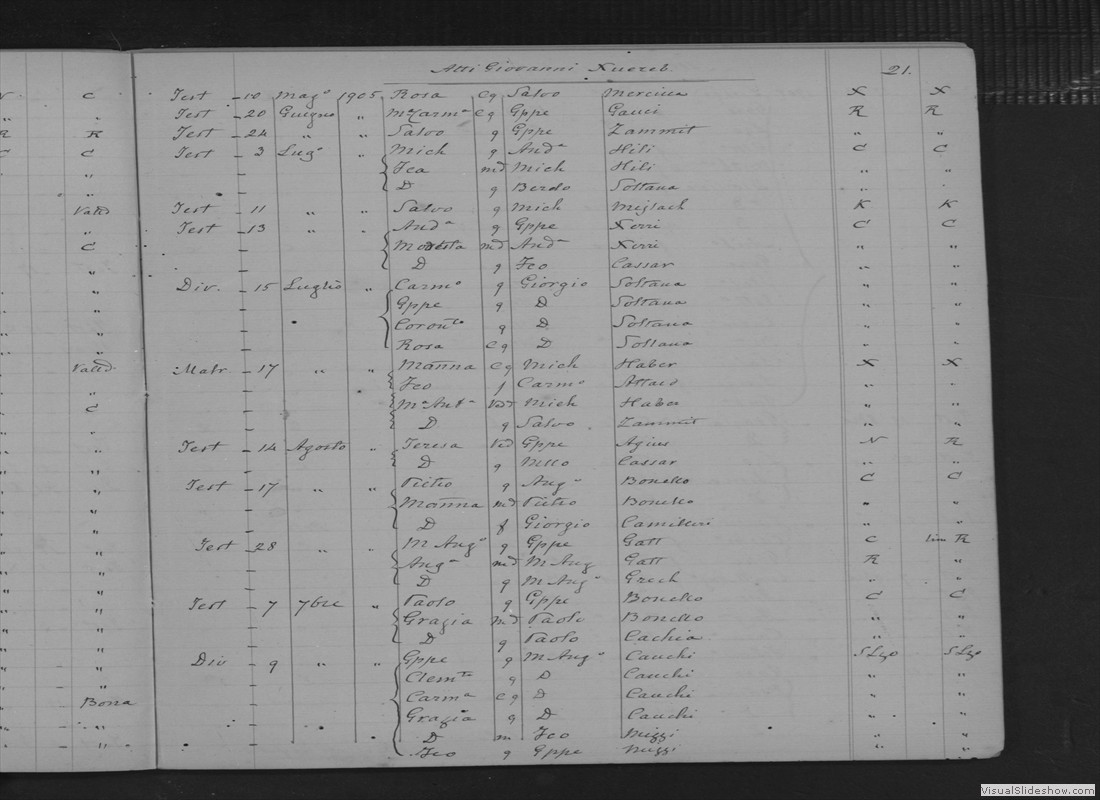 Atti Giovanni Xuereb. 21.
Test - 10 Mag° 1905 Rosa Cg Salvo Mercieca X X
Test - 20 Guigno " Ma Carma Cg Gppe Gauci R R
Test - 24 " " Salvo g Gppe Zammit " "
Test - 3 Lug° " Mich g Anda Hili C C
Fca md Mich Hili " "
D g Berdo Soltana " "
Test - 11 " " Salvo g Mich Mejlach K K
Test - 13 " " Anda g Gppe Xerri C C
Modesta md Anda Xerri " "
D g Fco Cassar " "
Div. - 15 Luglio " Carmo g Giorgio Soltana " "
Gppe g D Soltana " "
g D. Soltana " "
Rosa Cg D Soltana " "
Matr - 17 " " Marianna Cg Mich Haber X X
Fco f Carmo Attard " "
Ma Anta Ved Mich Haber " "
D g Salvo Zammit " "
Test - 14 Agosto " Teresa Ved Gppe Agius N R
D g Nello Cassar " "
Test - 17 " " Pietro g Ang° Bonello C C
Marianna md Pietro Bonello " "
D f Giorgio Camilleri " "
Test - 28 " " M Ang° g Gppe Gatt C lim R
Anga md M Ang Gatt R "
D g M Ang° Grech " "
Test - 7 7bre " Paolo g Gppe Bonello C C
Grazia md Paolo Bonello " "
D g Paolo Cachia " "
Div - 9 " " Gppe g M Ang° Cauchi SLzo SLzo
Clemte g D Cauchi " "
Carma Cg D Cauchi " "
Grazia g D Cauchi " "
D m Fco Muzzi " "
Fco g Gppe Muzzi " "
C
R
C
Valtd
C
Valtd.
C
Bona
VisualSlideshow.com